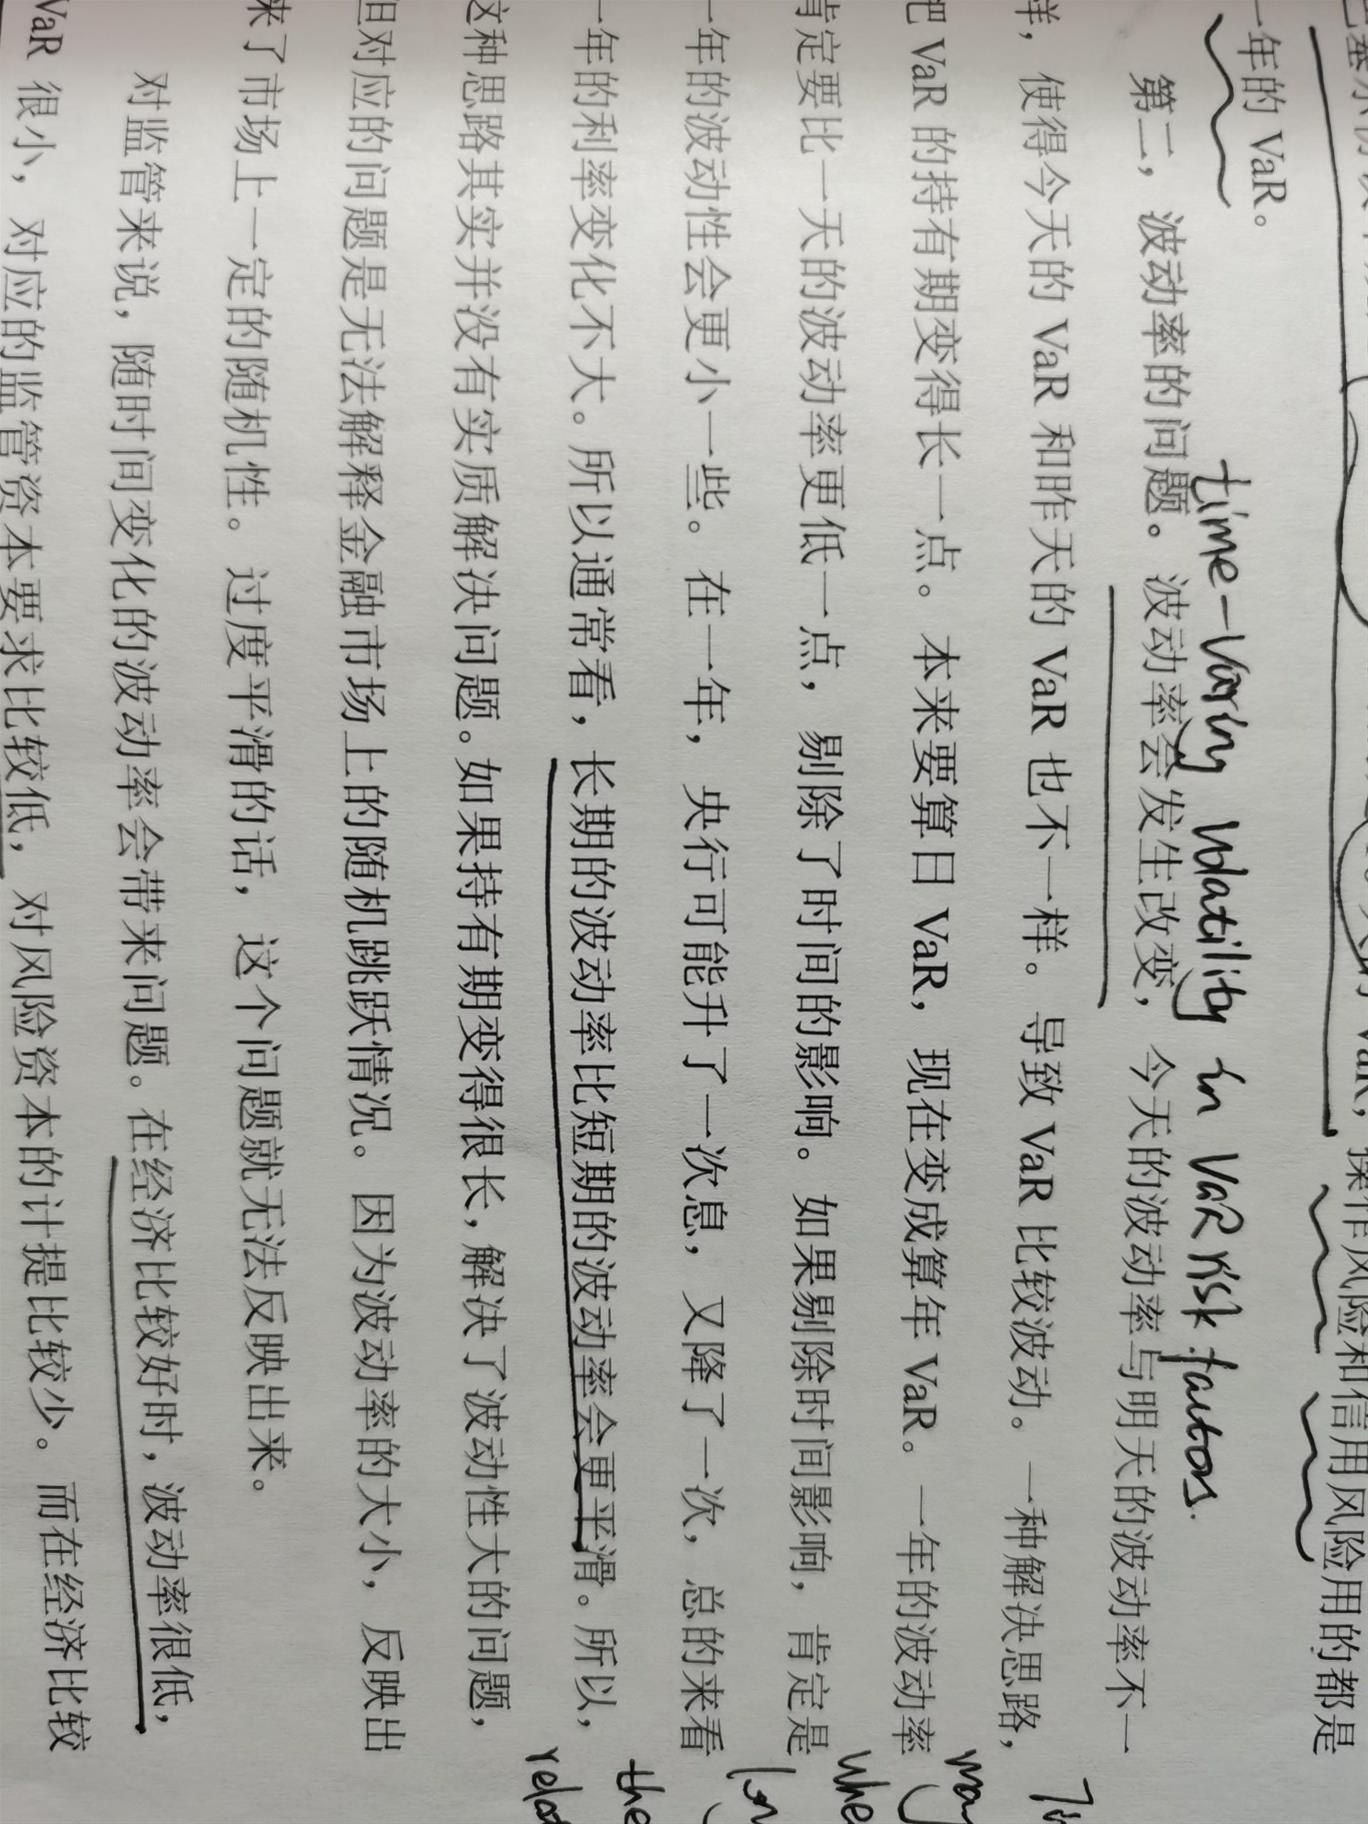 操作风险和信用风险用的都是
一年的 VaR。
time-varying volatility in VaR risk factors.
第二，波动率的问题。波动率会发生改变，今天的波动率与明天的波动率不一
样，使得今天的 VaR 和昨天的 VaR 也不一样。导致 VaR 比较波动。一种解决思路，
把 VaR 的持有期变得长一点。本来要算日 VaR，现在变成算年 VaR。一年的波动率
肯定要比一天的波动率更低一点，剔除了时间的影响。如果剔除时间影响，肯定是
一年的波动性会更小一些。在一年，央行可能升了一次息，又降了一次，总的来看
一年的利率变化不大。所以通常看，长期的波动率比短期的波动率会更平滑。所以，
这种思路其实并没有实质解决问题。如果持有期变得很长，解决了波动性大的问题，
但对应的问题是无法解释金融市场上的随机跳跃情况。因为波动率的大小，反映出
来了市场上一定的随机性。过度平滑的话，这个问题就无法反映出来。
对监管来说，随时间变化的波动率会带来问题。在经济比较好时，波动率很低，
VaR 很小，对应的监管资本要求比较低，对风险资本的计提比较少。而在经济比较
may
whe
lon
the
relat